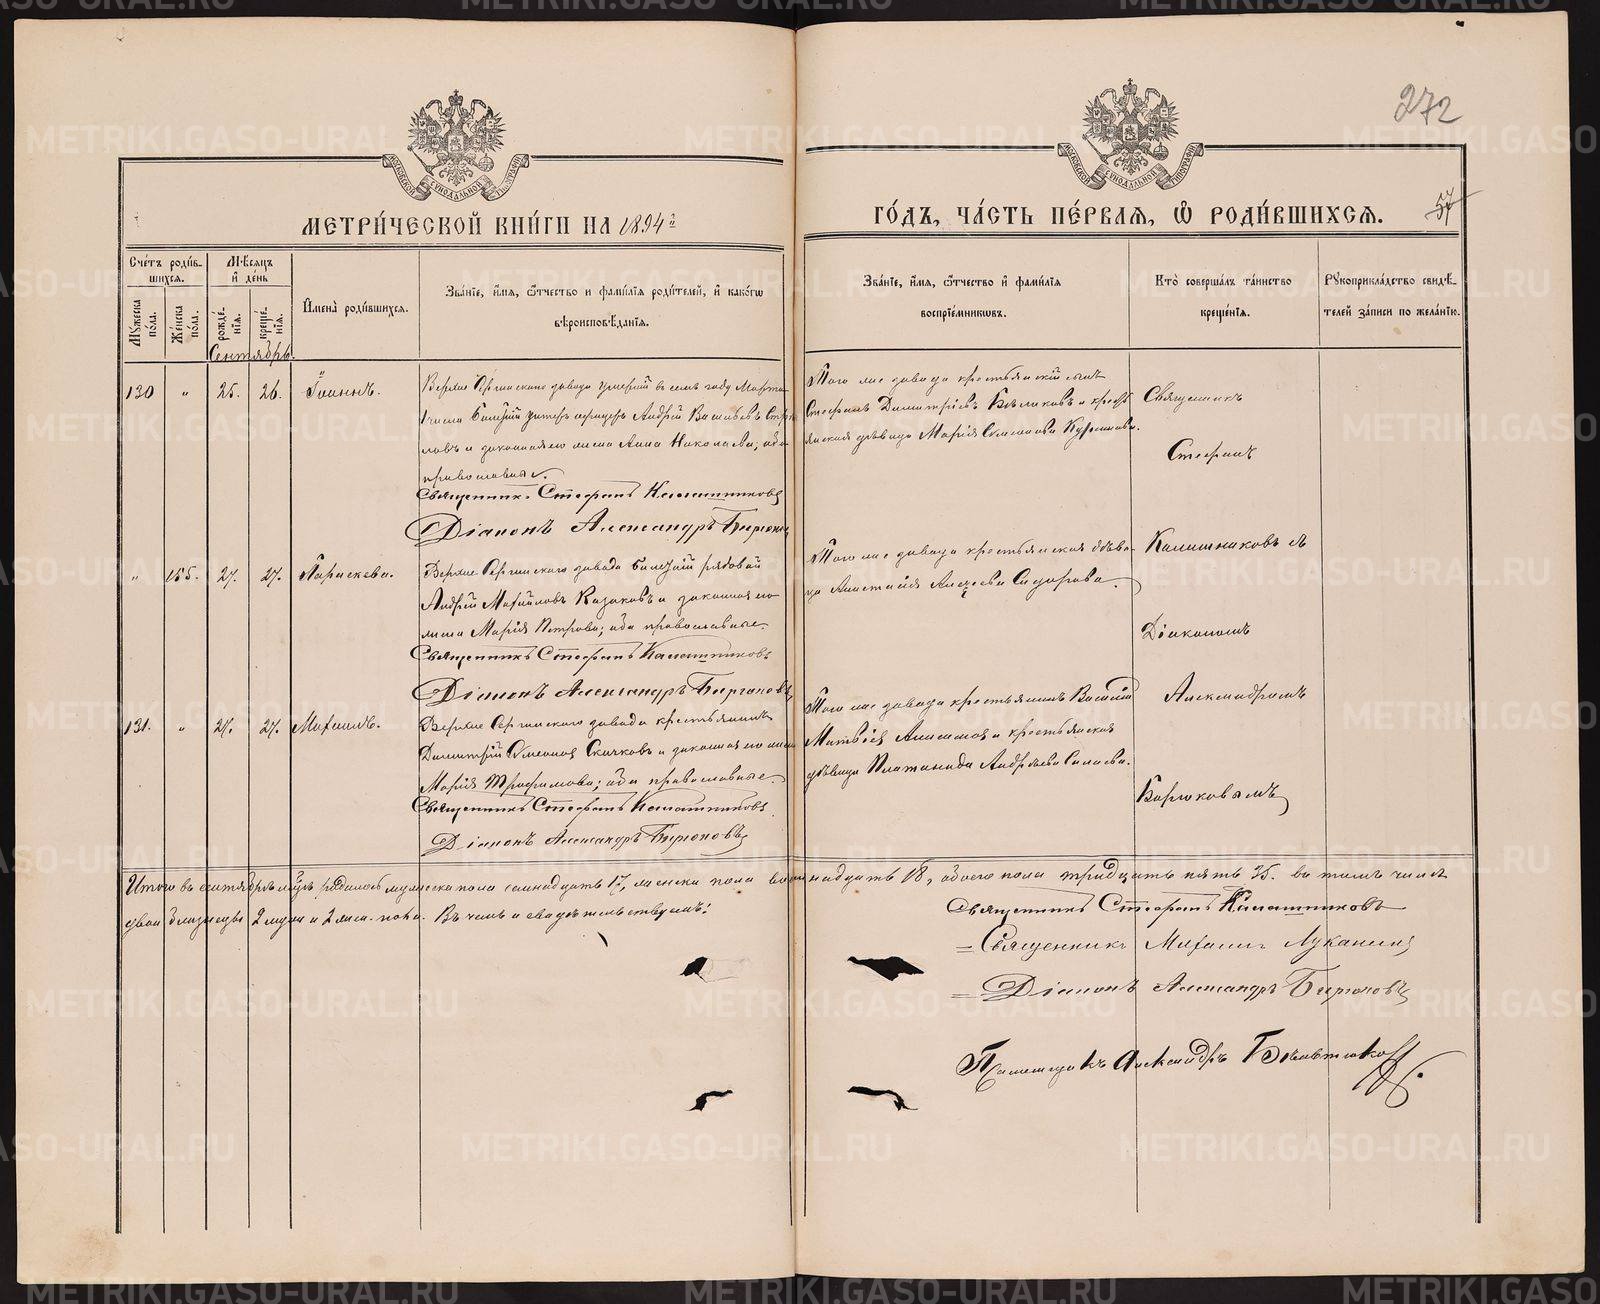 272
МЕТРИ́ЧЕСКОЙ КНИ́ГИ НА 1894й
ГО́ДЪ, ЧА́СТЬ ПЕ́РВАЯ, Ѡ РОДИ́ВШИХСЯ.
57
Сче́тъ роди́в-
шихся.
Мꙋжеска по́ла.
Же́нска по́ла.
Мѣ́сяцъ
и де́нь
рожде́-
нїя.
креще́-
нїя.
Сентябрь.
Имена̀ роди́вшихся.
Зва́нїе, и́мя, ѻ́тчество и фами́лїя роди́телей, и како́гѡ
вѣроисповѣ́данїя.
Зва́нїе, и́мя, ѻ́тчество и фами́лїя
воспрїе́мникѡвъ.
Кто̀ соверша́лъ та́инство
креще́нїя.
Рꙋкоприкла́дство свидѣ́-
телей за́писи по жела́нїю.
130 " 25. 26. Іоаннъ.
Верхне Сергинскаго завода умершій въ семъ году Марта
числа бывшій унтеръ офицеръ Андрей Васильевъ
и законная его жена Анна Николаева; оба
православные.
Священникъ Стефанъ Калашниковъ
Діаконъ Александръ Бирюковъ
Того же завода крестьянскій сынъ
Стефанъ Димитріевъ и кресть
янская дѣвица Марія Симеонова
Священникъ
Стефанъ
" 155. 27. 27. Параскева.
Верхне Сергинскаго завода бывшій рядовой
Андрей Михайловъ Казаковъ и законная его
жена Марія Петрова; оба православные.
Священникъ Стефанъ Калашниковъ
Діаконъ Александръ Бирюковъ
Того же завода крестьянская дѣви-
ца Анастасія Сидорова.
Калашниковъ съ
Діакономъ
131. " 27. 27. Михаилъ.
Верхне Сергинскаго завода крестьянинъ
Димитрій Симеоновъ Скачковъ и законная его жена
Марія Трофимова; оба православные.
Священникъ Стефанъ Калашниковъ
Діаконъ Александръ Бирюковъ
Того же завода крестьянинъ Василій
и крестьянская
дѣвица Платонида Андреева
Александромъ
Бирюковымъ
Итого въ сентябрѣ м҃цѣ родилось мужеска пола семнадцать 17, женска пола восемнадцать 18, обоего пола тридцать пять 35. въ томъ числѣ
двои близнецы 2 муж. и 2 жен. пола. Въ чемъ и свидѣтельствуемъ:
Священникъ Стефанъ Калашниковъ
Священникъ Михаилъ Луканинъ
Діаконъ Александръ Бирюковъ
Псаломщикъ Александръ